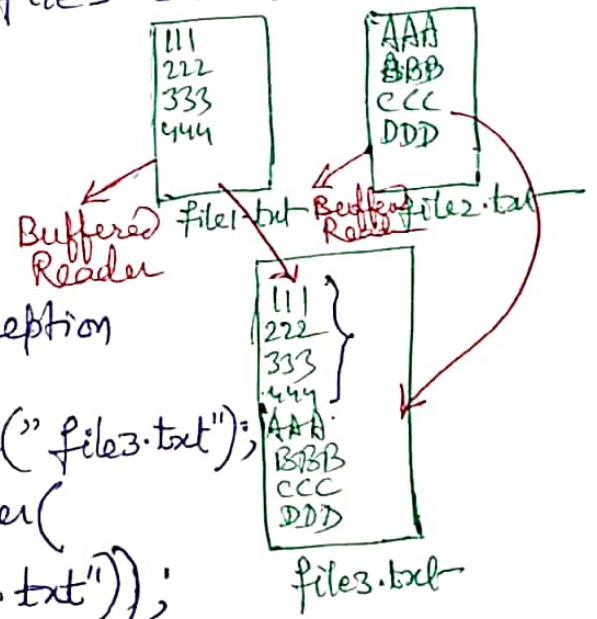 111
222
333
444
AAA
BBB
CCC
DDD
Buffered
Reader
file1.txt
Buffered
file2.txt
eption
(" file3.txt");
er(
.txt"));
111
222
333
444
AAA
BBB
CCC
DDD
file3.txt